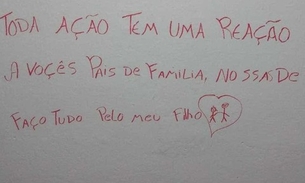 TODA AÇÃO TEM UMA REAÇÃO
A VOÇÊS PAIS DE FAMILIA, NOSSA DE
FAÇO TUDO PELO MEU FILHO